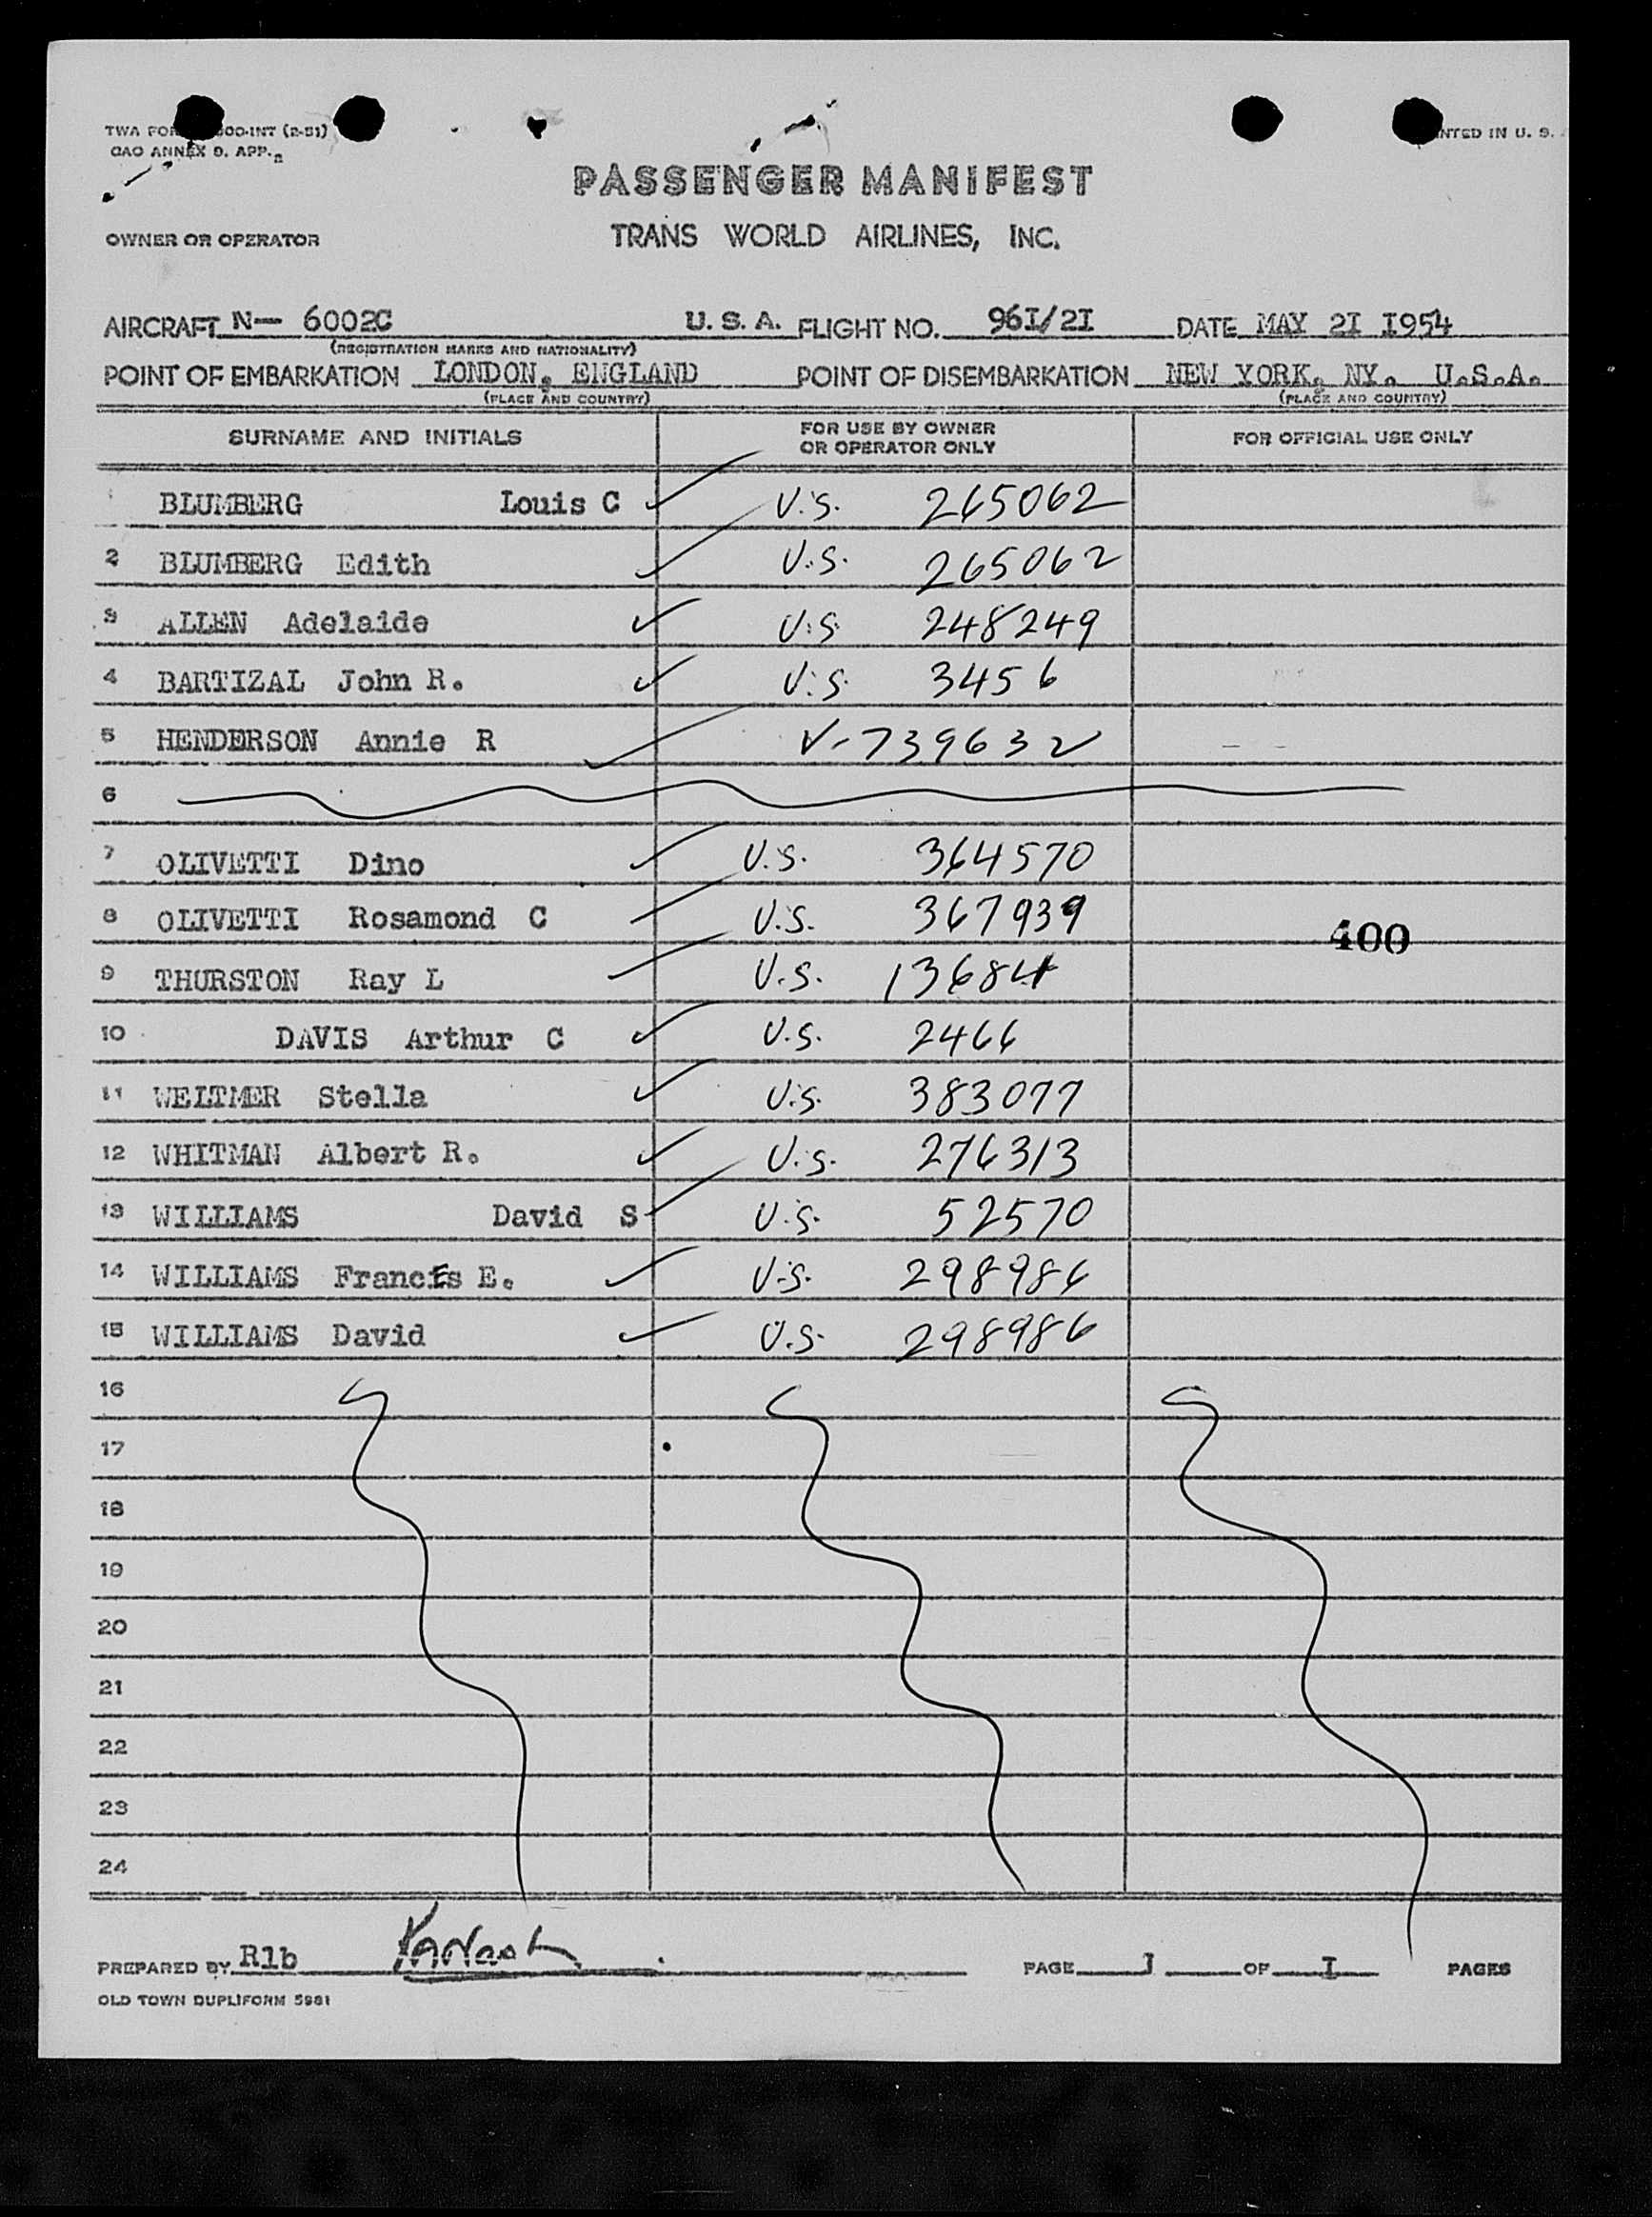 TWA FOR 000-INT (2-51)
CAO ANNEX 9, APP. 2
NTED IN U. S.
PASSENGER MANIFEST
OWNER OR OPERATOR TRANS WORLD AIRLINES, INC.
AIRCRAFT N— 6002C U.S.A. FLIGHT NO. 96I/2I DATE MAY 2I I954
(REGISTRATION MARKS AND NATIONALITY)
POINT OF EMBARKATION LONDON, ENGLAND POINT OF DISEMBARKATION NEW YORK, NY. U.S.A.
(PLACE AND COUNTRY) (PLACE AND COUNTRY)
SURNAME AND INITIALS FOR USE BY OWNER OR OPERATOR ONLY FOR OFFICIAL USE ONLY
1 BLUMBERG Louis C ✓ U.S. 265062
2 BLUMBERG Edith ✓ U.S. 265062
3 ALLEN Adelaide ✓ U.S. 248249
4 BARTIZAL John R. ✓ U.S. 3456
5 HENDERSON Annie R ✓ V-739632
6
7 OLIVETTI Dino ✓ U.S. 364570
8 OLIVETTI Rosamond C ✓ U.S. 367939
400
9 THURSTON Ray L ✓ U.S. 13684
10 DAVIS Arthur C ✓ U.S. 2466
11 WELTMER Stella ✓ U.S. 383077
12 WHITMAN Albert R. ✓ U.S. 276313
13 WILLIAMS David S ✓ U.S. 52570
14 WILLIAMS FrancEs E. ✓ U.S. 298986
15 WILLIAMS David ✓ U.S. 298986
16
17
18
19
20
21
22
23
24
PREPARED BY Rlb PAGE I OF I PAGES
OLD TOWN DUPLIFORM 5981